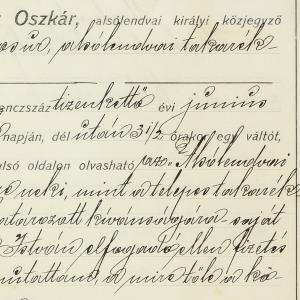 Oszkár, alsólendvai királyi közjegyző
úr, alsólendvai takarék-
enczszáz tizenkettő évi junius
napján, dél után 3 1/2 órakor egy váltót,
ulsó oldalon olvasható "Alsólendvai
neki, mint a telepes takarék
határozott kivánságára saját
István elfogadó ellen fizetés
mutattam, a mire től e a kö-